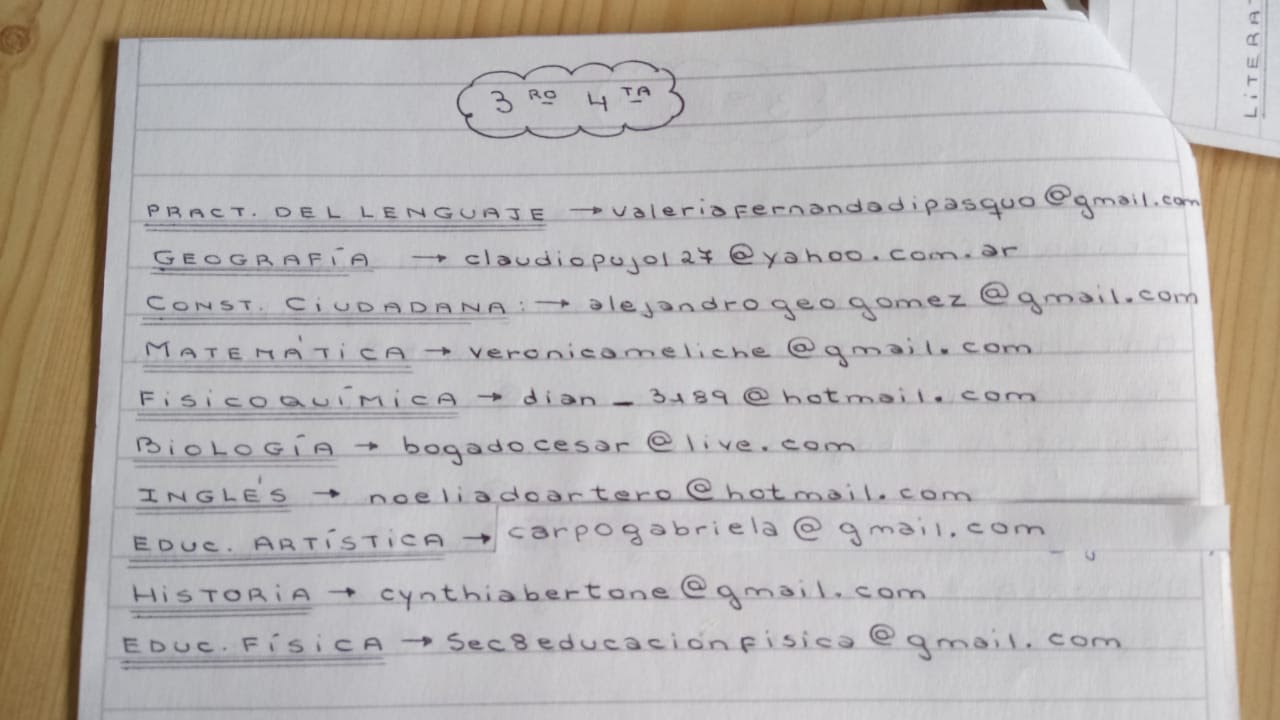 3 RO 4 TA
PRACT. DEL LENGUAJE → valeriafernandadipasquo@gmail.com
GEOGRAFÍA → claudiopujol27@yahoo.com.ar
CONST. CIUDADANA: → alejandrogeogomez@gmail.com
MATEMÁTICA → veronicameliche@gmail.com
FISICOQUÍMICA → dian_3189@hotmail.com
BIOLOGÍA → bogadocesar@live.com
INGLÉS → noeliadoartero@hotmail.com
EDUC. ARTÍSTICA → carpogabriela@gmail.com
HISTORIA → cynthiabertone@gmail.com
EDUC. FÍSICA → Sec8educacionfisica@gmail.com
LITERAT